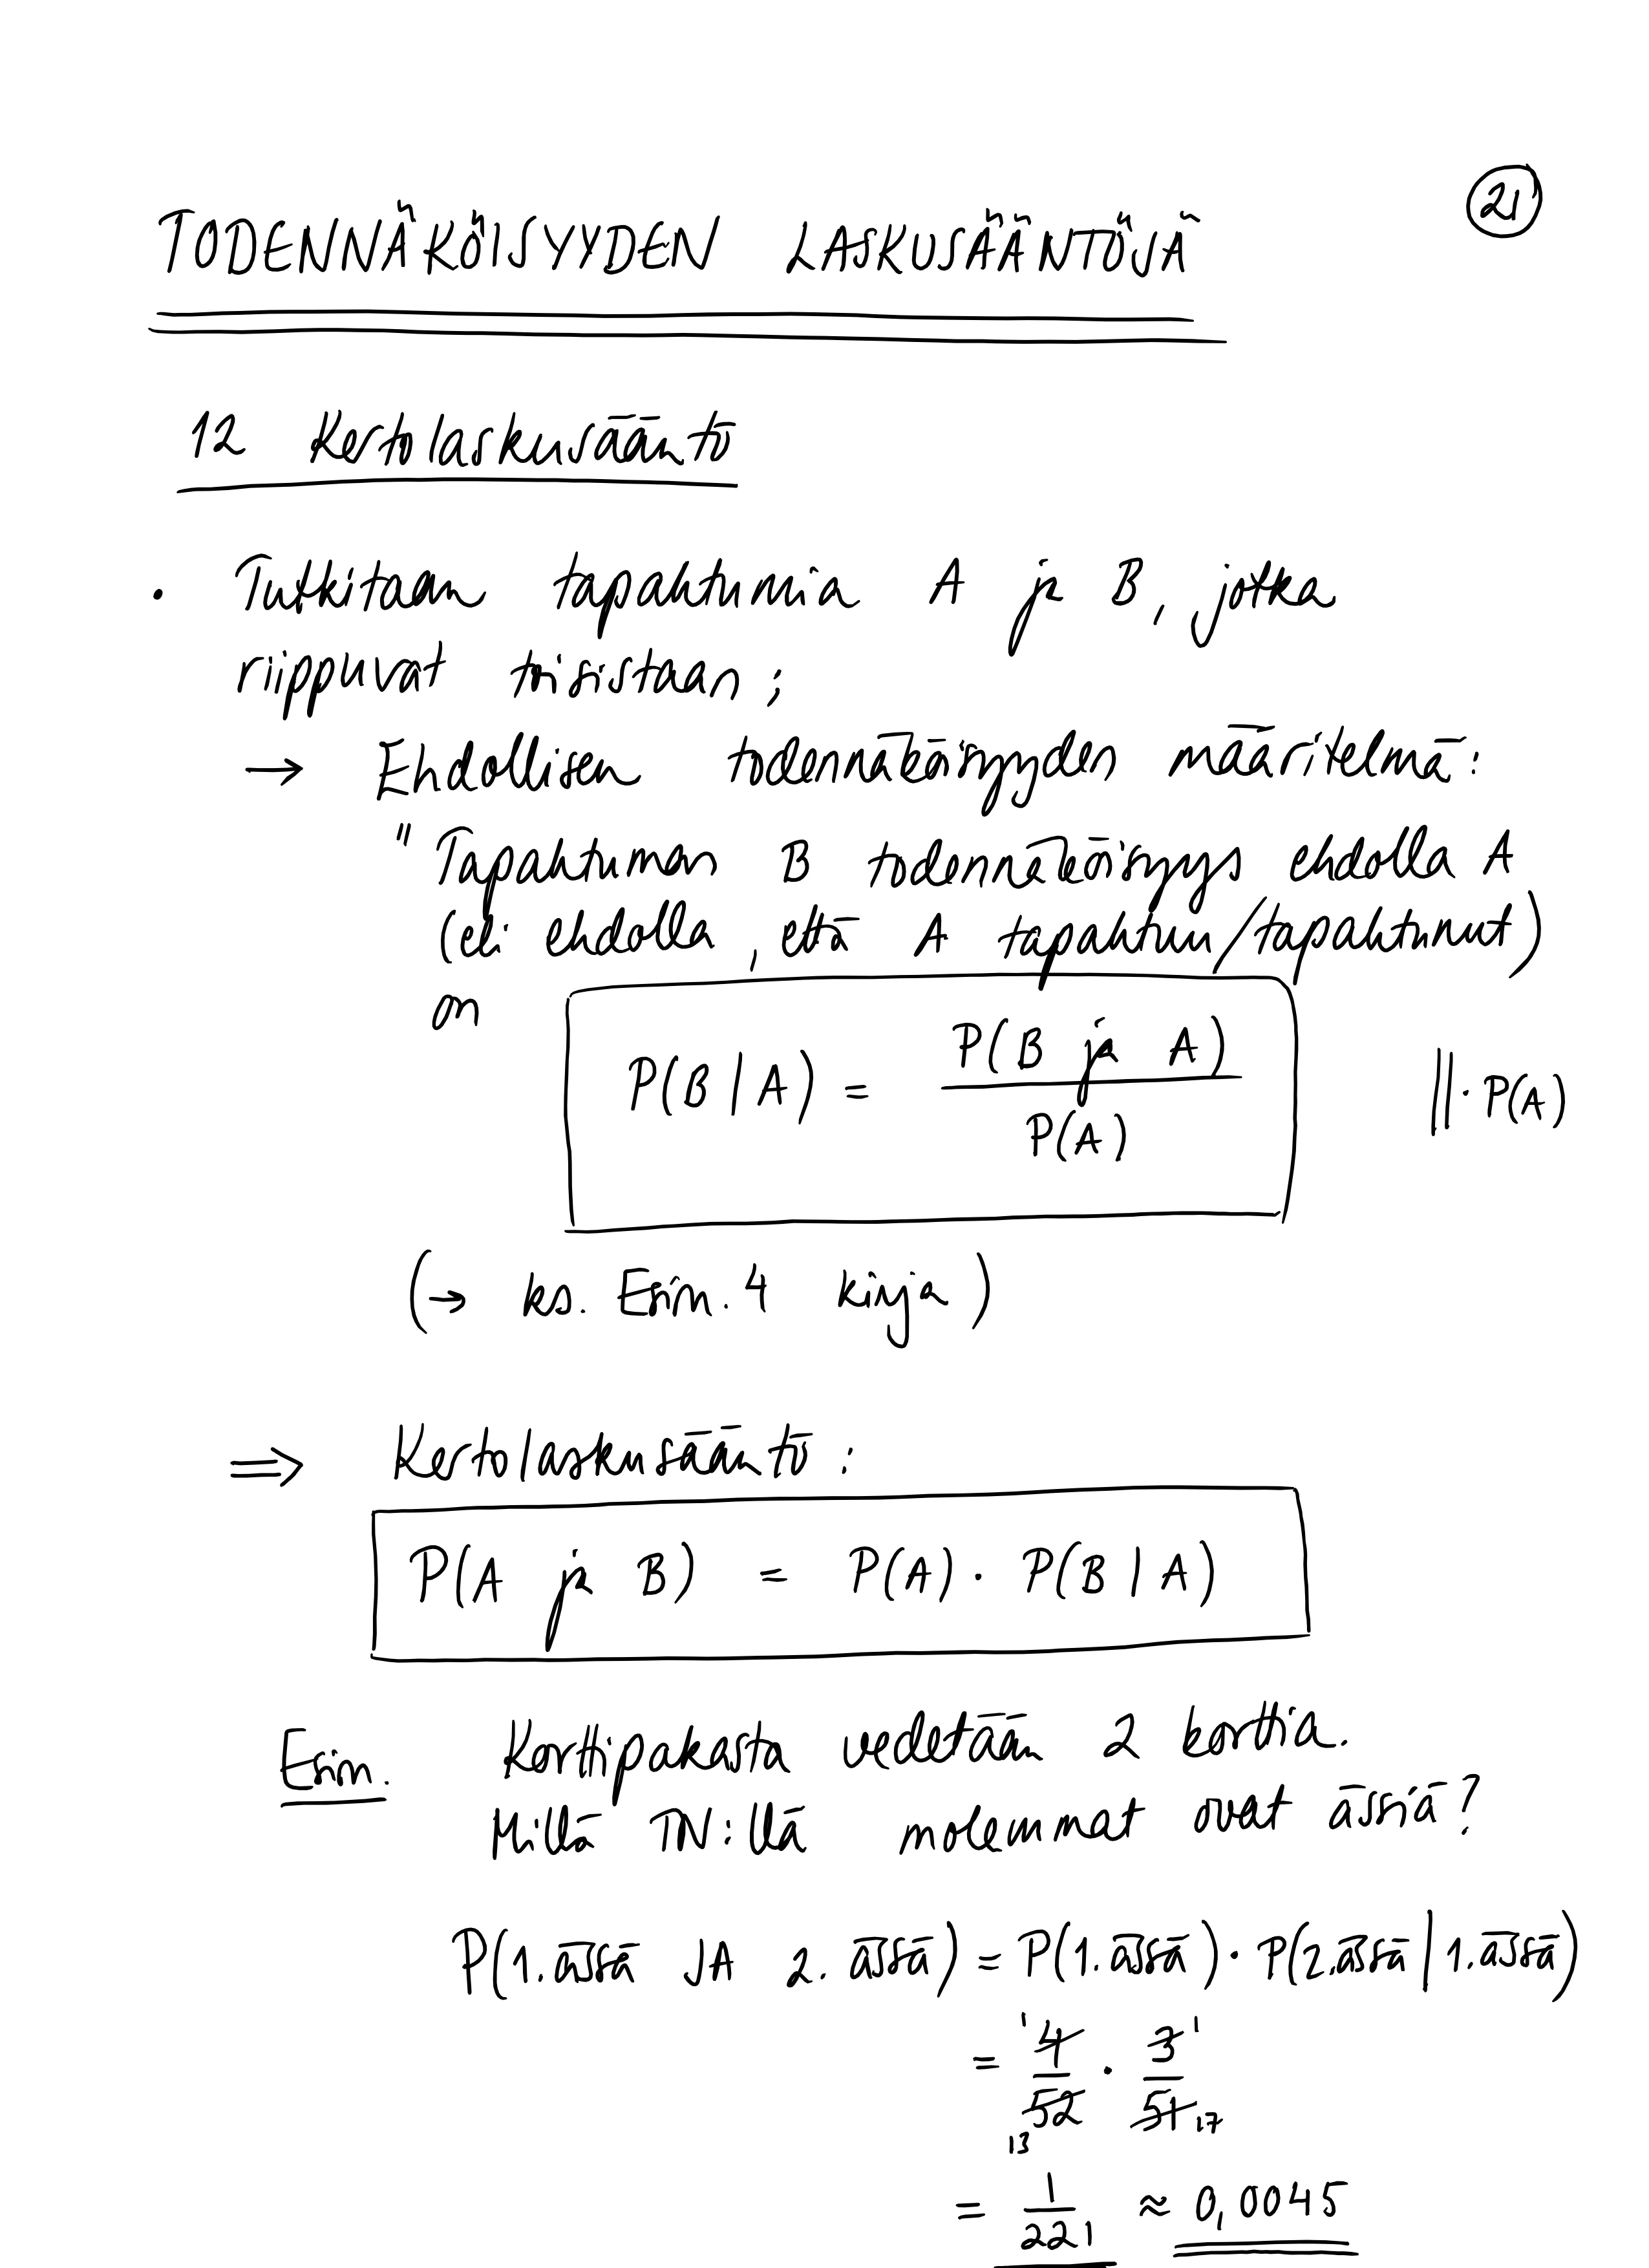 21
TODENNÄKÖISYYDEN LASKUSÄÄNTÖJÄ
12 Kertolaskusääntö
• Tutkitaan tapahtumia A ja B, jotka
riippuvat toisistaan;
→ Ehdollisen todennäköisyyden määritelmä:
" Tapahtuman B todennäköisyys ehdolla A
(eli ehdolla, että A tapahtuu/tapahtunut)
on
P(B | A) = P(B ja A) / P(A) || · P(A)
(→ ks. Esim. 4 kirja)
⇒ Kertolaskusääntö:
P(A ja B) = P(A) · P(B | A)
Esim. Korttipakasta vedetään 2 korttia.
Millä TN:llä molemmat ovat ässiä?
P(1. ässä JA 2. ässä) = P(1. ässä) · P(2. ässä | 1. ässä)
= 1 4/52 13 · 3 1/51 17
= 1/221 ≈ 0,0045